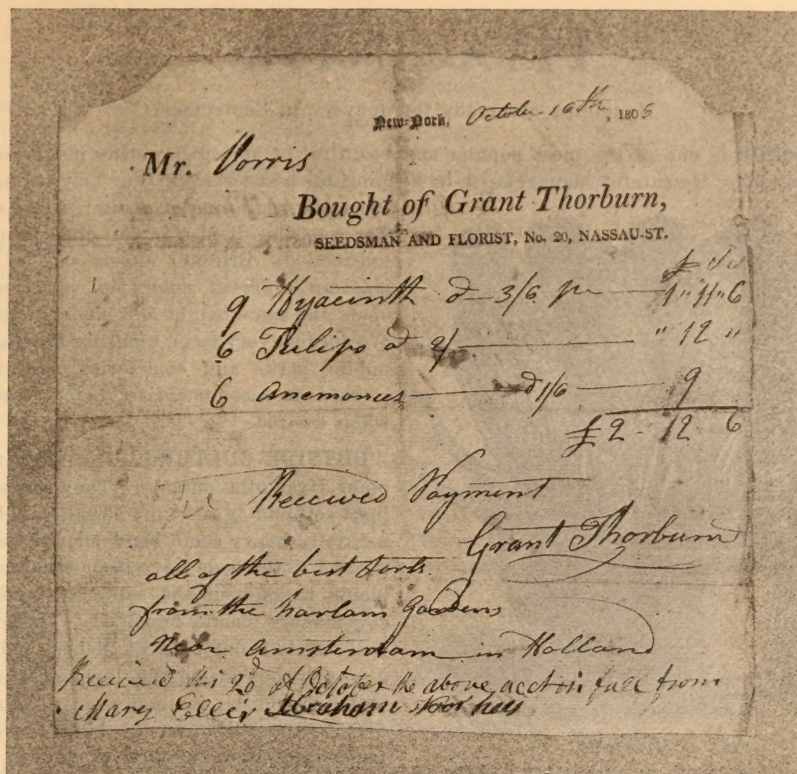 New-York, October 16th, 1805
Mr. Vorris
Bought of Grant Thorburn,
SEEDSMAN AND FLORIST, No. 20, NASSAU-ST.
£
9 Hyacinth @ 3/6 pr 1 " 11 " 6
6 Tulips @ 2/ " 12 "
6 Anemones @ 1/6 9
£2 - 12 6
Received Payment
Grant Thorburn
all of the best sorts
from the harlam Gardens
Near Amsterdam in Holland
Received this 2d of October the above acct in full from
Mary Ellis Abraham